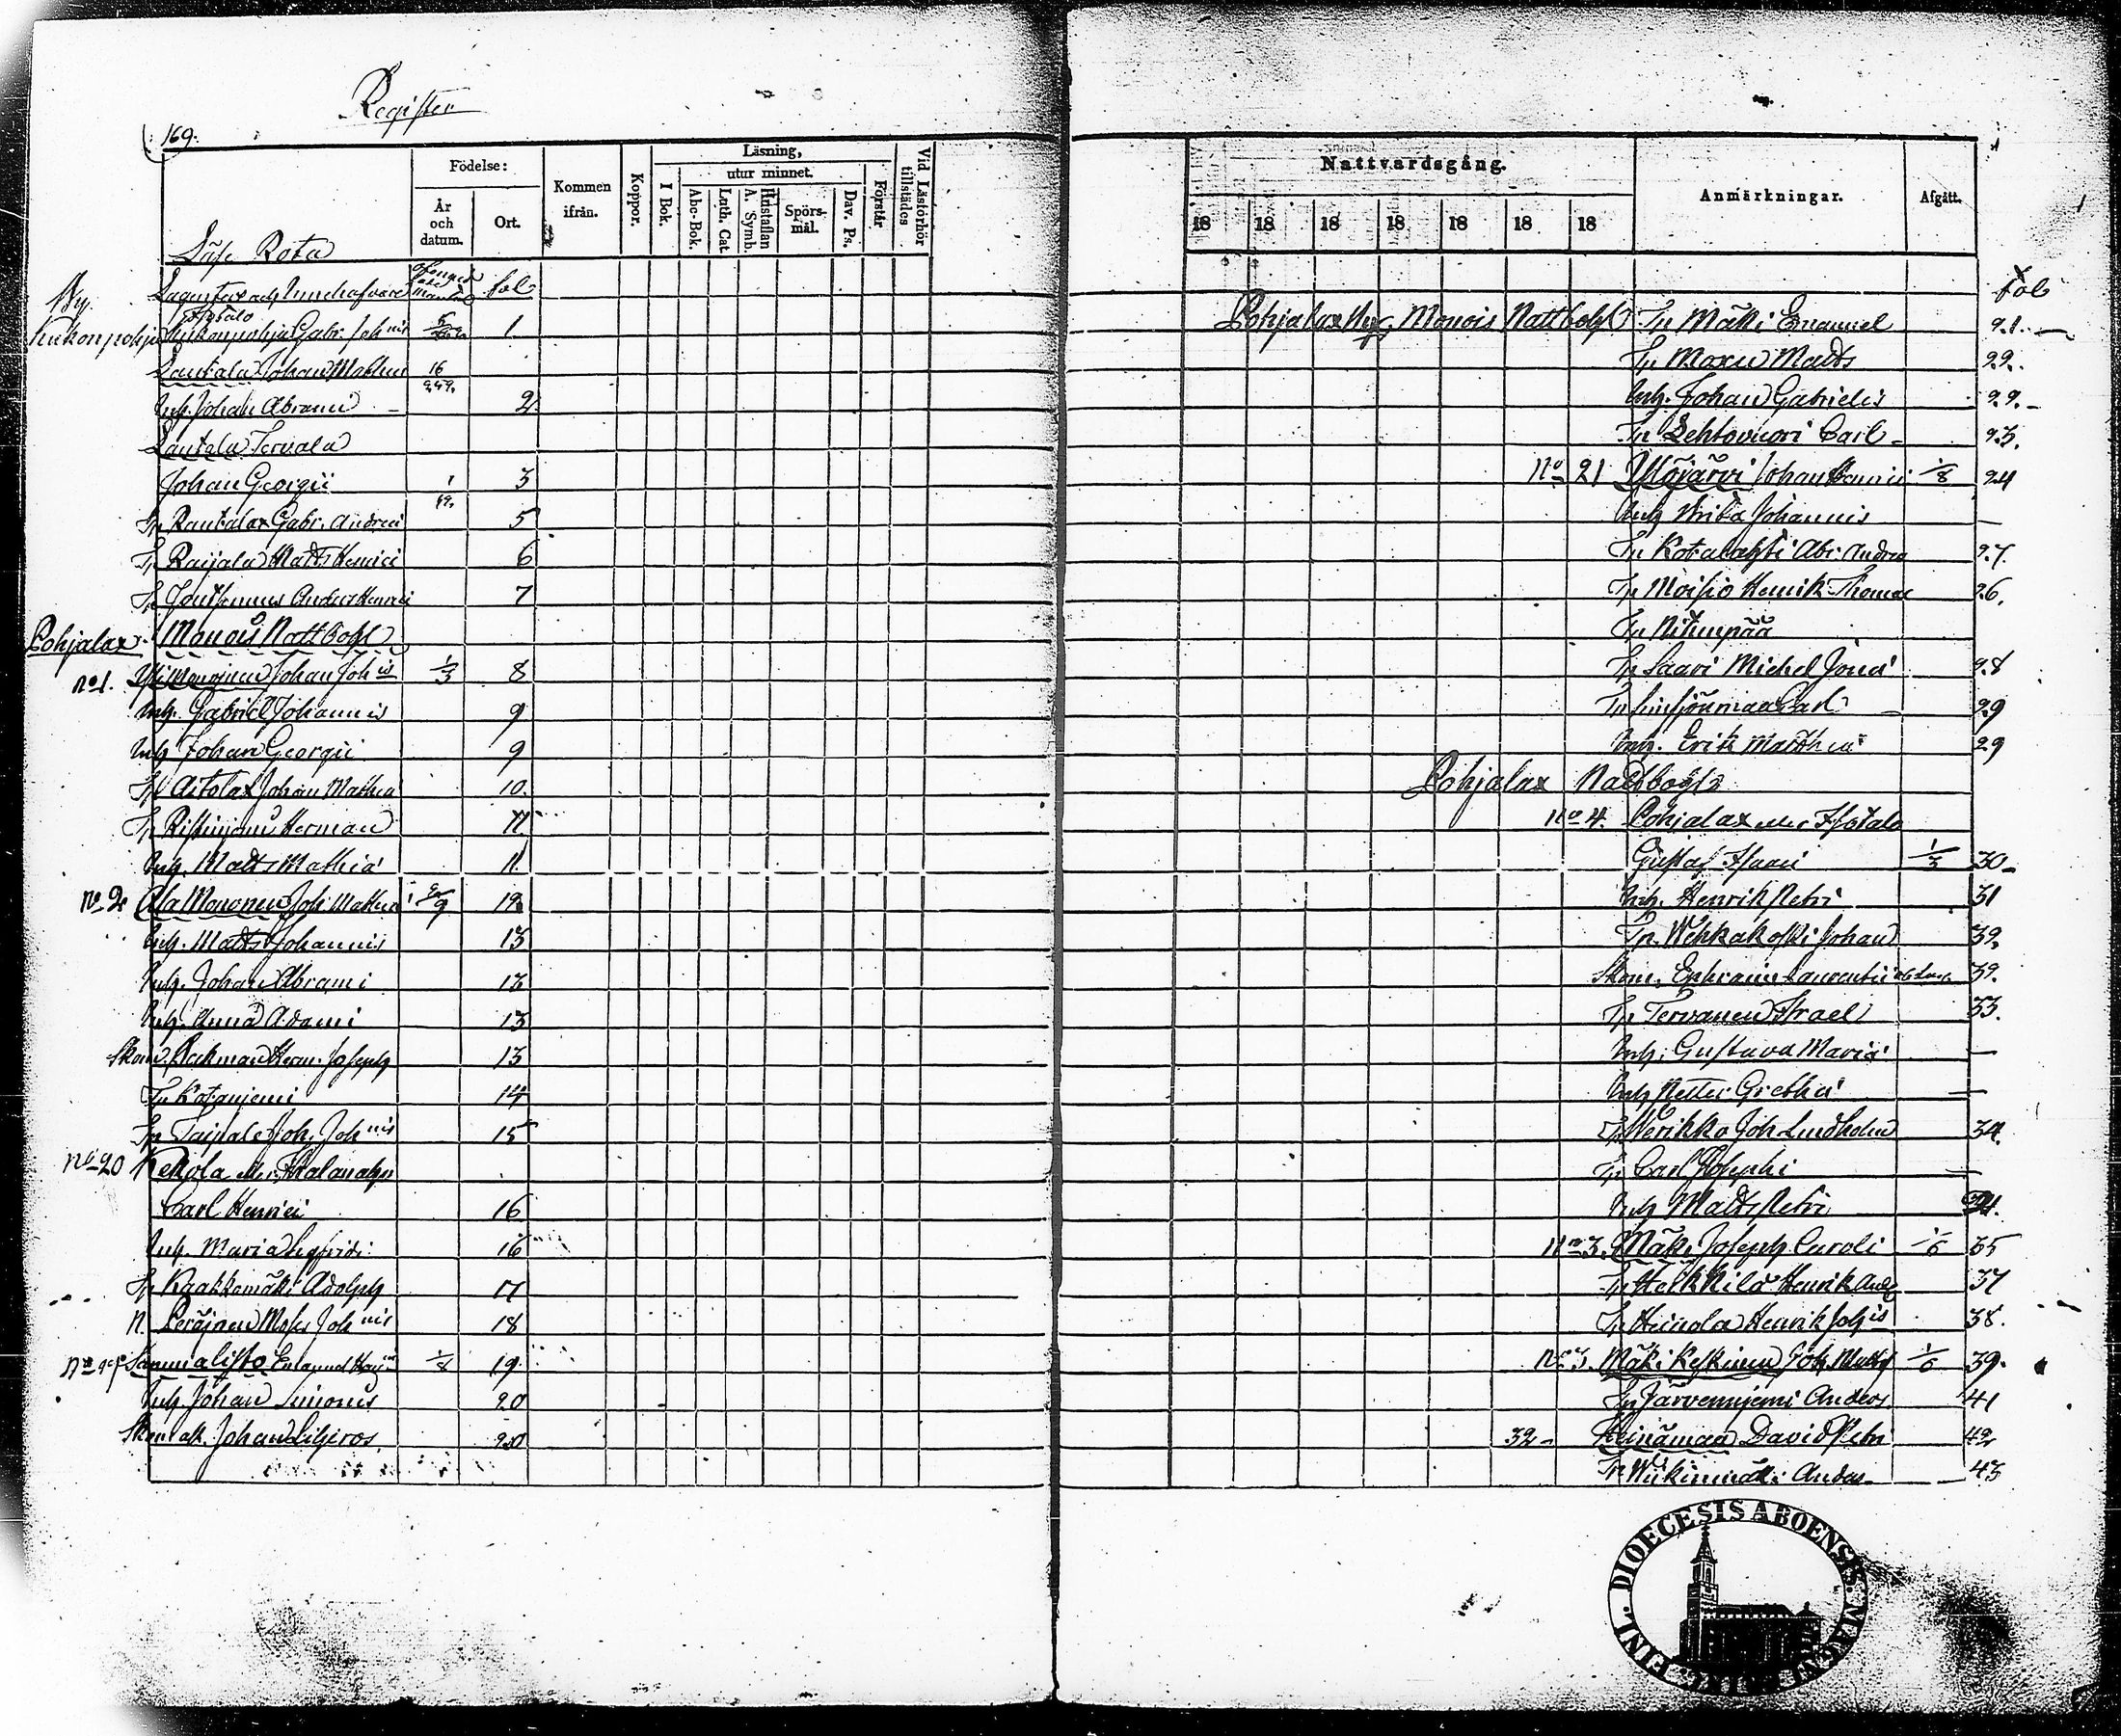 Register
169.
Födelse:
År och datum.
Ort.
Kommen ifrån.
Koppor.
Läsning,
I Bok.
utur minnet.
Abc-Bok.
Luth. Cat
A. Symb.
Hustaflan
Spörsmål.
Dav. Ps.
Förstår
Vid Läsförhör tillstädes
Rota
fol
By Kukonpohja Kukonpohja Gabr. Joh nis 1.
Lautala Johan Mathiæ 16
Inh. Johan Abrami 2.
Lautala Tervala
Johan Georgii 3
Tp Rantalax Gabr. Andreæ 5
Tp Raijala Matts Henrici 6
Tp Anders Henrici 7
Pohjalax. Monois Nattbohl
No 1. Yli Monoinen Johan Joh is 1/3 8
Inh. Gabriel Johannis 9
Inh Johan Georgii 9
Tp Aitolax Johan Mathiæ 10.
Tp Ristinjemi Herman 11.
Inh. Matts Mathiæ 11.
No 2 Ala Monoinen Joh. Mathiæ 2/9 12
Inh. Matts Johannis 13
Inh. Johan Abrami 13
Inh. Anna Adami 13
Skom. Herm. Joseph 13
Tp Kotanjemi 14
Tp Taipale Joh. Joh nis 15
No 20 Kekola
Carl Henrici 16
Inh. Maria Sigfridi 16
Tp Kaakkomäki Adolph 17
N. Peräjän Moses Joh nis 18
Sammalisto 1/8 19.
Inh. Johan Simonis 20
Johan 20
Nattvardsgång.
18 18 18 18 18 18 18
Anmärkningar.
Afgått.
fol
Pohjalax By, Monois Nattbohl Tp Mäki Emanuel 21.
Tp Maxu Matts 22.
Inh. Johan Gabrielis 22.
Tp Lehtovuori Carl 23.
No 21 Johan 1/8 24
Inh Brita Johannis
Tp Kotalahti Abr. Andreæ 27.
Tp Moisio Henrik Thomæ 26.
Tp Nihinpää
Tp Saari Michel Jonæ 28
Tp Carl 29
Inh. Erik Matthiæ 29
Pohjalax Nattbohl
No 4. Pohjalax eller Isotalo
Gustaf Isaaci 1/3 30
Inh. Henrik Petri 31
Tp. Wehkakoski Johan 32.
Skom. Ephraim Laurentii 32.
Tp Tervanen Israel 33.
Inh. Gustava Mariæ
Inh Petter Grethæ
Tp Werikko Joh Lindholm 34.
Tp Carl Josephi
Inh Matts Petri 34.
No 3. Mäki Joseph Caroli 1/6 35
Tp Heikkilä Henrik And 37
Tp Heinola Henrik Joh is 38.
No 3. Mäki Keskinen Joh. 1/6 39.
Tp Järvennjemi Anders 41
32 Heinämaa David Petri 42
Tp Anders 43
FINL. DIOECESIS ABOENSIS.